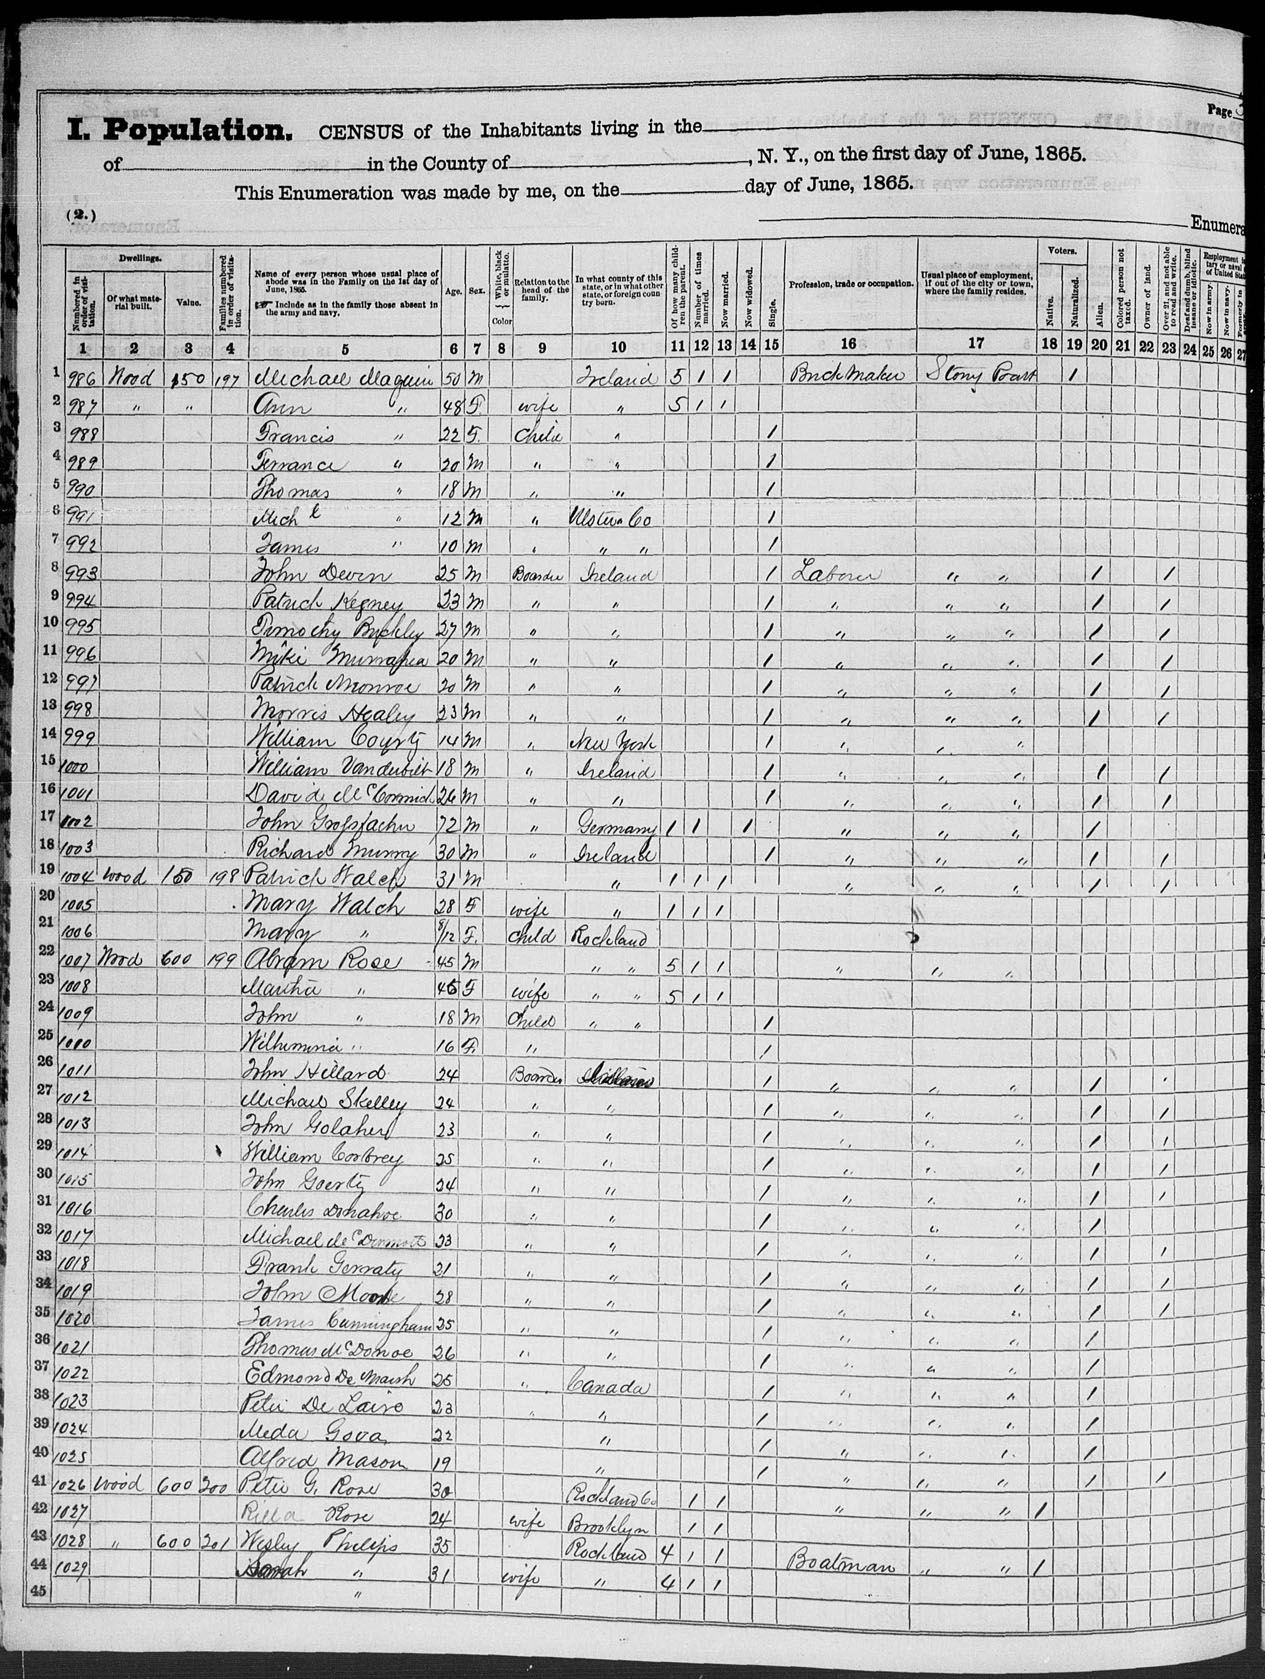 Page
I. Population. CENSUS of the Inhabitants living in the
of in the County of , N. Y., on the first day of June, 1865.
This Enumeration was made by me, on the day of June, 1865.
(2.)
Enumera
Dwellings. Voters.
Numbered in order of visitation. Of what material built. Value. Families numbered in order of visitation. Name of every person whose usual place of abode was in the Family on the 1st day of June, 1865. Include as in the family those absent in the army and navy. Age. Sex. White, black or mulatto. Color Relation to the head of the family. In what county of this state, or in what other state, or foreign country born. Of how many children the parent. Number of times married. Now married. Now widowed. Single. Profession, trade or occupation. Usual place of employment, if out of the city or town, where the family resides. Native. Naturalized. Alien. Colored person not taxed. Owner of land. Over 21, and not able to read and write. Deaf and dumb, blind insane or idiotic. Now in army. Now in navy. Formerly in
1 2 3 4 5 6 7 8 9 10 11 12 13 14 15 16 17 18 19 20 21 22 23 24 25 26 27
1 986 Wood 150 197 Michael Maguin 50 M Ireland 5 1 1 Brick Maker Stony 1
2 987 " " Ann " 48 F wife " 5 1 1
3 988 Francis " 22 F. Child " 1
4 989 Terrance " 20 M " " 1
5 990 Thomas " 18 M " " 1
6 991 Mich l " 12 M " Ulster Co 1
7 992 James " 10 M " " " 1
8 993 John Deven 25 M Boarder Ireland 1 Laborer " " 1 1
9 994 Patrick Kegney 23 M " " 1 " " " 1 1
10 995 Timothy Buckley 27 M " " 1 " " " 1 1
11 996 Mike 20 M " " 1 " " " 1 1
12 997 Patrick Monroe 20 M " " 1 " " " 1 1
13 998 Morris Healey 23 M " " 1 " " " 1 1
14 999 William 14 M " New York 1 " " "
15 1000 William Vanderbilt 18 M " Ireland 1 " " " 1 1
16 1001 David McCormick 26 M " " 1 " " " 1 1
17 1002 John 72 M " Germany 1 1 1 " " " 1
18 1003 Richard Murry 30 M " Ireland 1 " " " 1 1
19 1004 Wood 150 198 Patrick Walch 31 M " 1 1 1 " " " 1 1
20 1005 Mary Walch 28 F wife " 1 1 1
21 1006 Mary " 8/12 F. Child Rockland
22 1007 Wood 600 199 Abram Rose 45 M " " 5 1 1 " " "
23 1008 Martha " 46 F wife " " 5 1 1
24 1009 John " 18 M Child " " 1
25 1010 Wilhiminia " 16 F. " 1
26 1011 John Hillard 24 Boarder 1 " " " 1 1
27 1012 Michael Skelley 24 " " 1 " " " 1 1
28 1013 John Golaher 23 " " 1 " " " 1 1
29 1014 William Corbrey 25 " " 1 " " " 1 1
30 1015 John Goerty 24 " " 1 " " " 1 1
31 1016 Charles Donahoe 30 " " 1 " " " 1
32 1017 Michael McDermott 23 " " 1 " " " 1 1
33 1018 Frank Gerraty 21 " " 1 " " " 1 1
34 1019 John Moore 28 " " 1 " " " 1 1
35 1020 James Cunningham 25 " " 1 " " " 1
36 1021 Thomas McDonoe 26 " " 1 " " " 1
37 1022 Edmond De Marsh 25 " Canada 1 " " " 1
38 1023 Peter De Lairo 23 " " 1 " " " 1
39 1024 Meda Gova 22 " 1 " " " 1
40 1025 Alfred Mason 19 " 1 " " " 1 1
41 1026 Wood 600 200 Peter G. Rose 30 Rockland Co 1 1 " " " 1
42 1027 Rilla Rose 24 wife Brooklyn 1 1
43 1028 " 600 201 Wesley Philips 35 Rockland 4 1 1 Boatman " " 1
44 1029 Sarah " 31 wife " 4 1 1
45 "